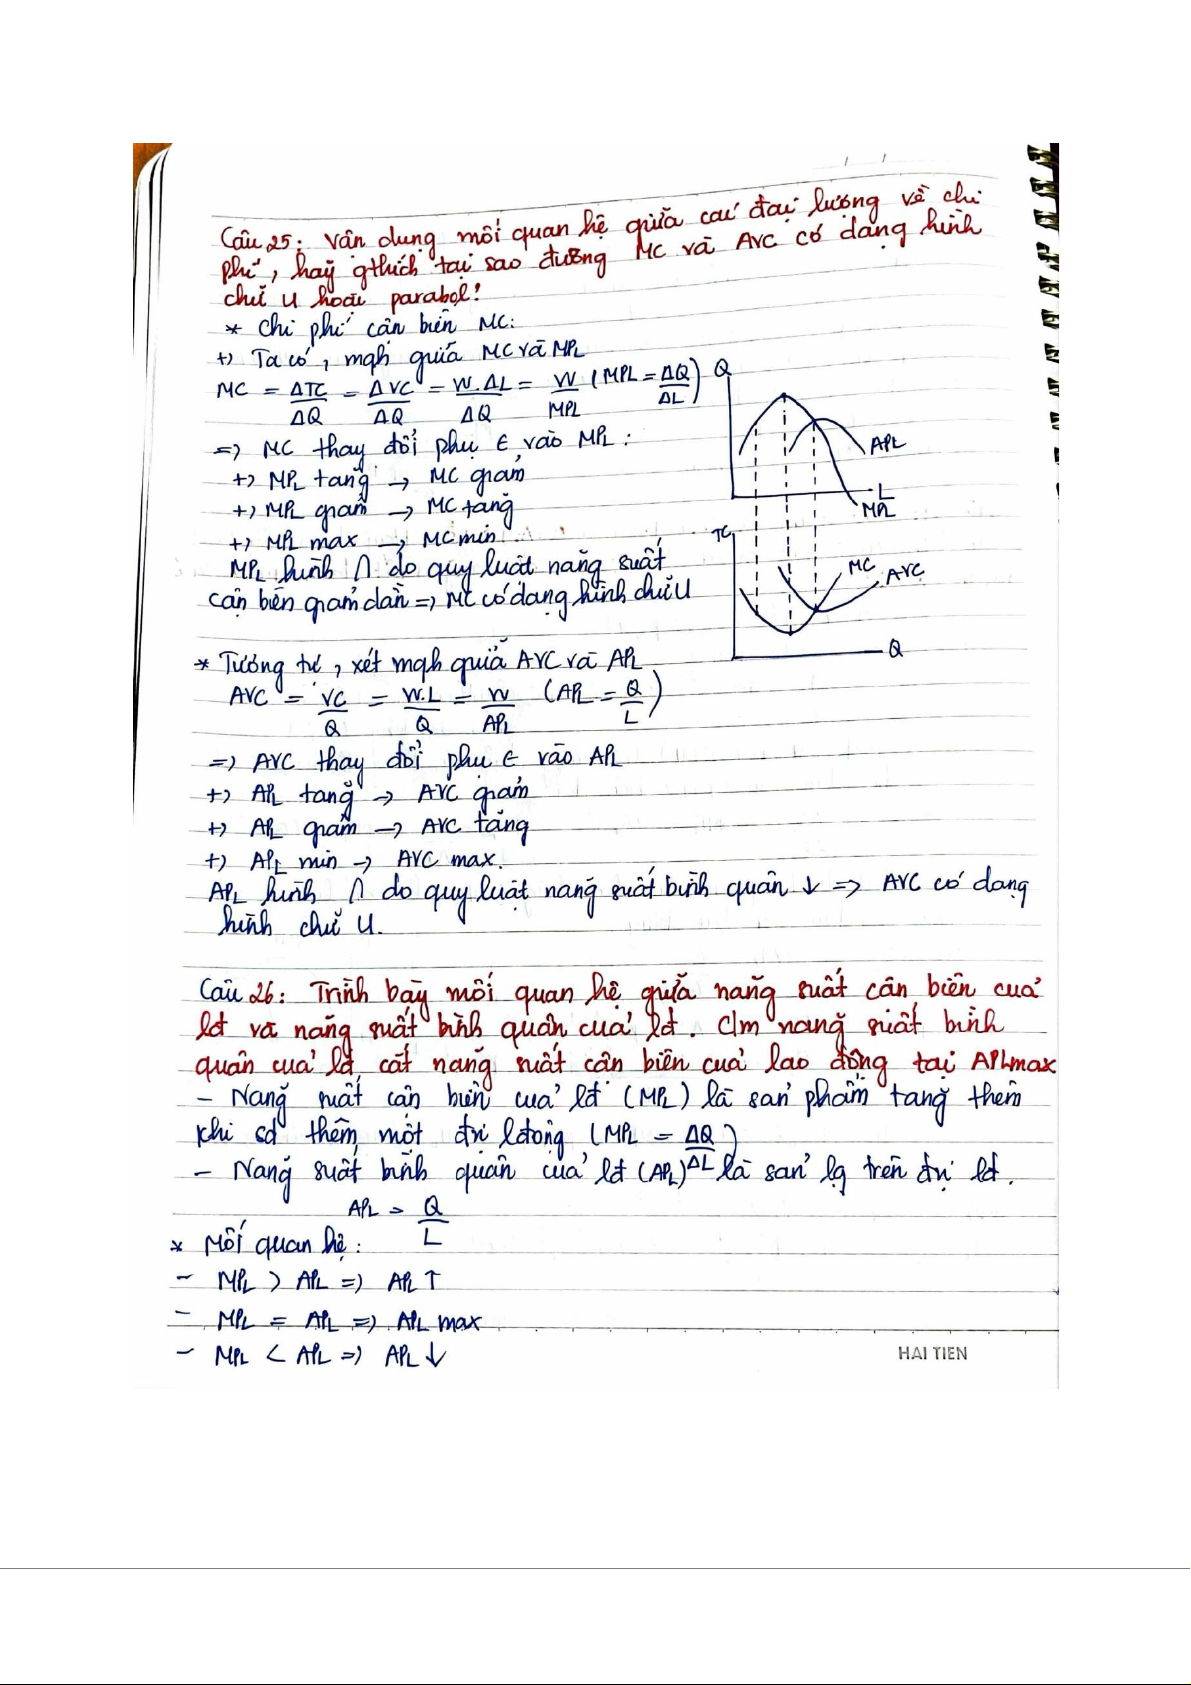 Câu 25: Vận dụng mối quan hệ giữa các đại lượng về chi
phí, hãy gthích tại sao đường MC và AVC có dạng hình
chữ U hoặc parabol!
* Chi phí cận biên MC:
+) Ta có, mqh giữa MC và MPL
MC = ΔTC/ΔQ = ΔVC/ΔQ = W.ΔL/ΔQ = W/MPL (MPL = ΔQ/ΔL)
=) MC thay đổi phụ ∈ vào MPL:
+) MPL tăng → MC giảm
+) MPL giảm → MC tăng
+) MPL max → MC min
MPL hình ∩ do quy luật năng suất
cận biên giảm dần => MC có dạng hình chữ U
Q
APL
L
MPL
TC
MC
AVC
Q
* Tương tự, xét mqh giữa AVC và APL
AVC = VC/Q = W.L/Q = W/APL (APL = Q/L)
=) AVC thay đổi phụ ∈ vào APL
+) APL tăng → AVC giảm
+) APL giảm → AVC tăng
+) APL min → AVC max.
APL hình ∩ do quy luật năng suất bình quân ↓ => AVC có dạng
hình chữ U.
Câu 26: Trình bày mối quan hệ giữa năng suất cận biên của
lđ và năng suất bình quân của lđ. C/m năng suất bình
quân của lđ cắt năng suất cận biên của lao động tại APLmax
- Năng suất cận biên của lđ (MPL) là sản phẩm tăng thêm
khi sd thêm một đvị lđộng (MPL = ΔQ/ΔL)
- Năng suất bình quân của lđ (APL) là sản lg trên đvị lđ.
APL = Q/L
* Mối quan hệ:
- MPL > APL =) APL ↑
- MPL = APL =) APL max
- MPL < APL =) APL ↓
HAI TIEN